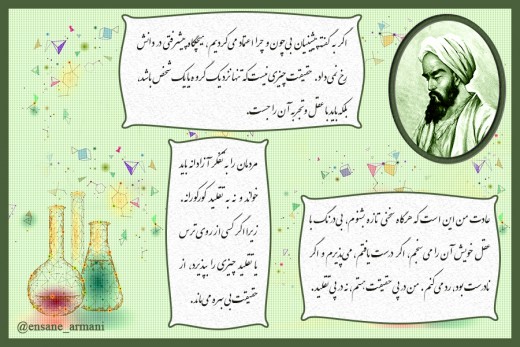 اگر به گفته پیشینیان بی‌چون و چرا اعتماد می‌کردیم، هیچگاه پیشرفتی در دانش
رخ نمی‌داد. حقیقت چیزی نیست که تنها نزد یک گروه یا یک شخص باشد،
بلکه باید با عقل و تجربه آن را جست.
مردمان را به تفکر آزادانه باید
خواند و نه به تقلید کورکورانه.
زیرا اگر کسی از روی ترس
یا تقلید چیزی را بپذیرد، از
حقیقت بی‌بهره می‌ماند.
عادت من این است که هرگاه سخنی تازه بشنوم، بی‌درنگ با
عقل خویش آن را می‌سنجم، اگر درست یافتم، می‌پذیرم و اگر
نادرست بود، رد می‌کنم. من در پی حقیقت هستم، نه در پی تقلید.
@ensane_armani